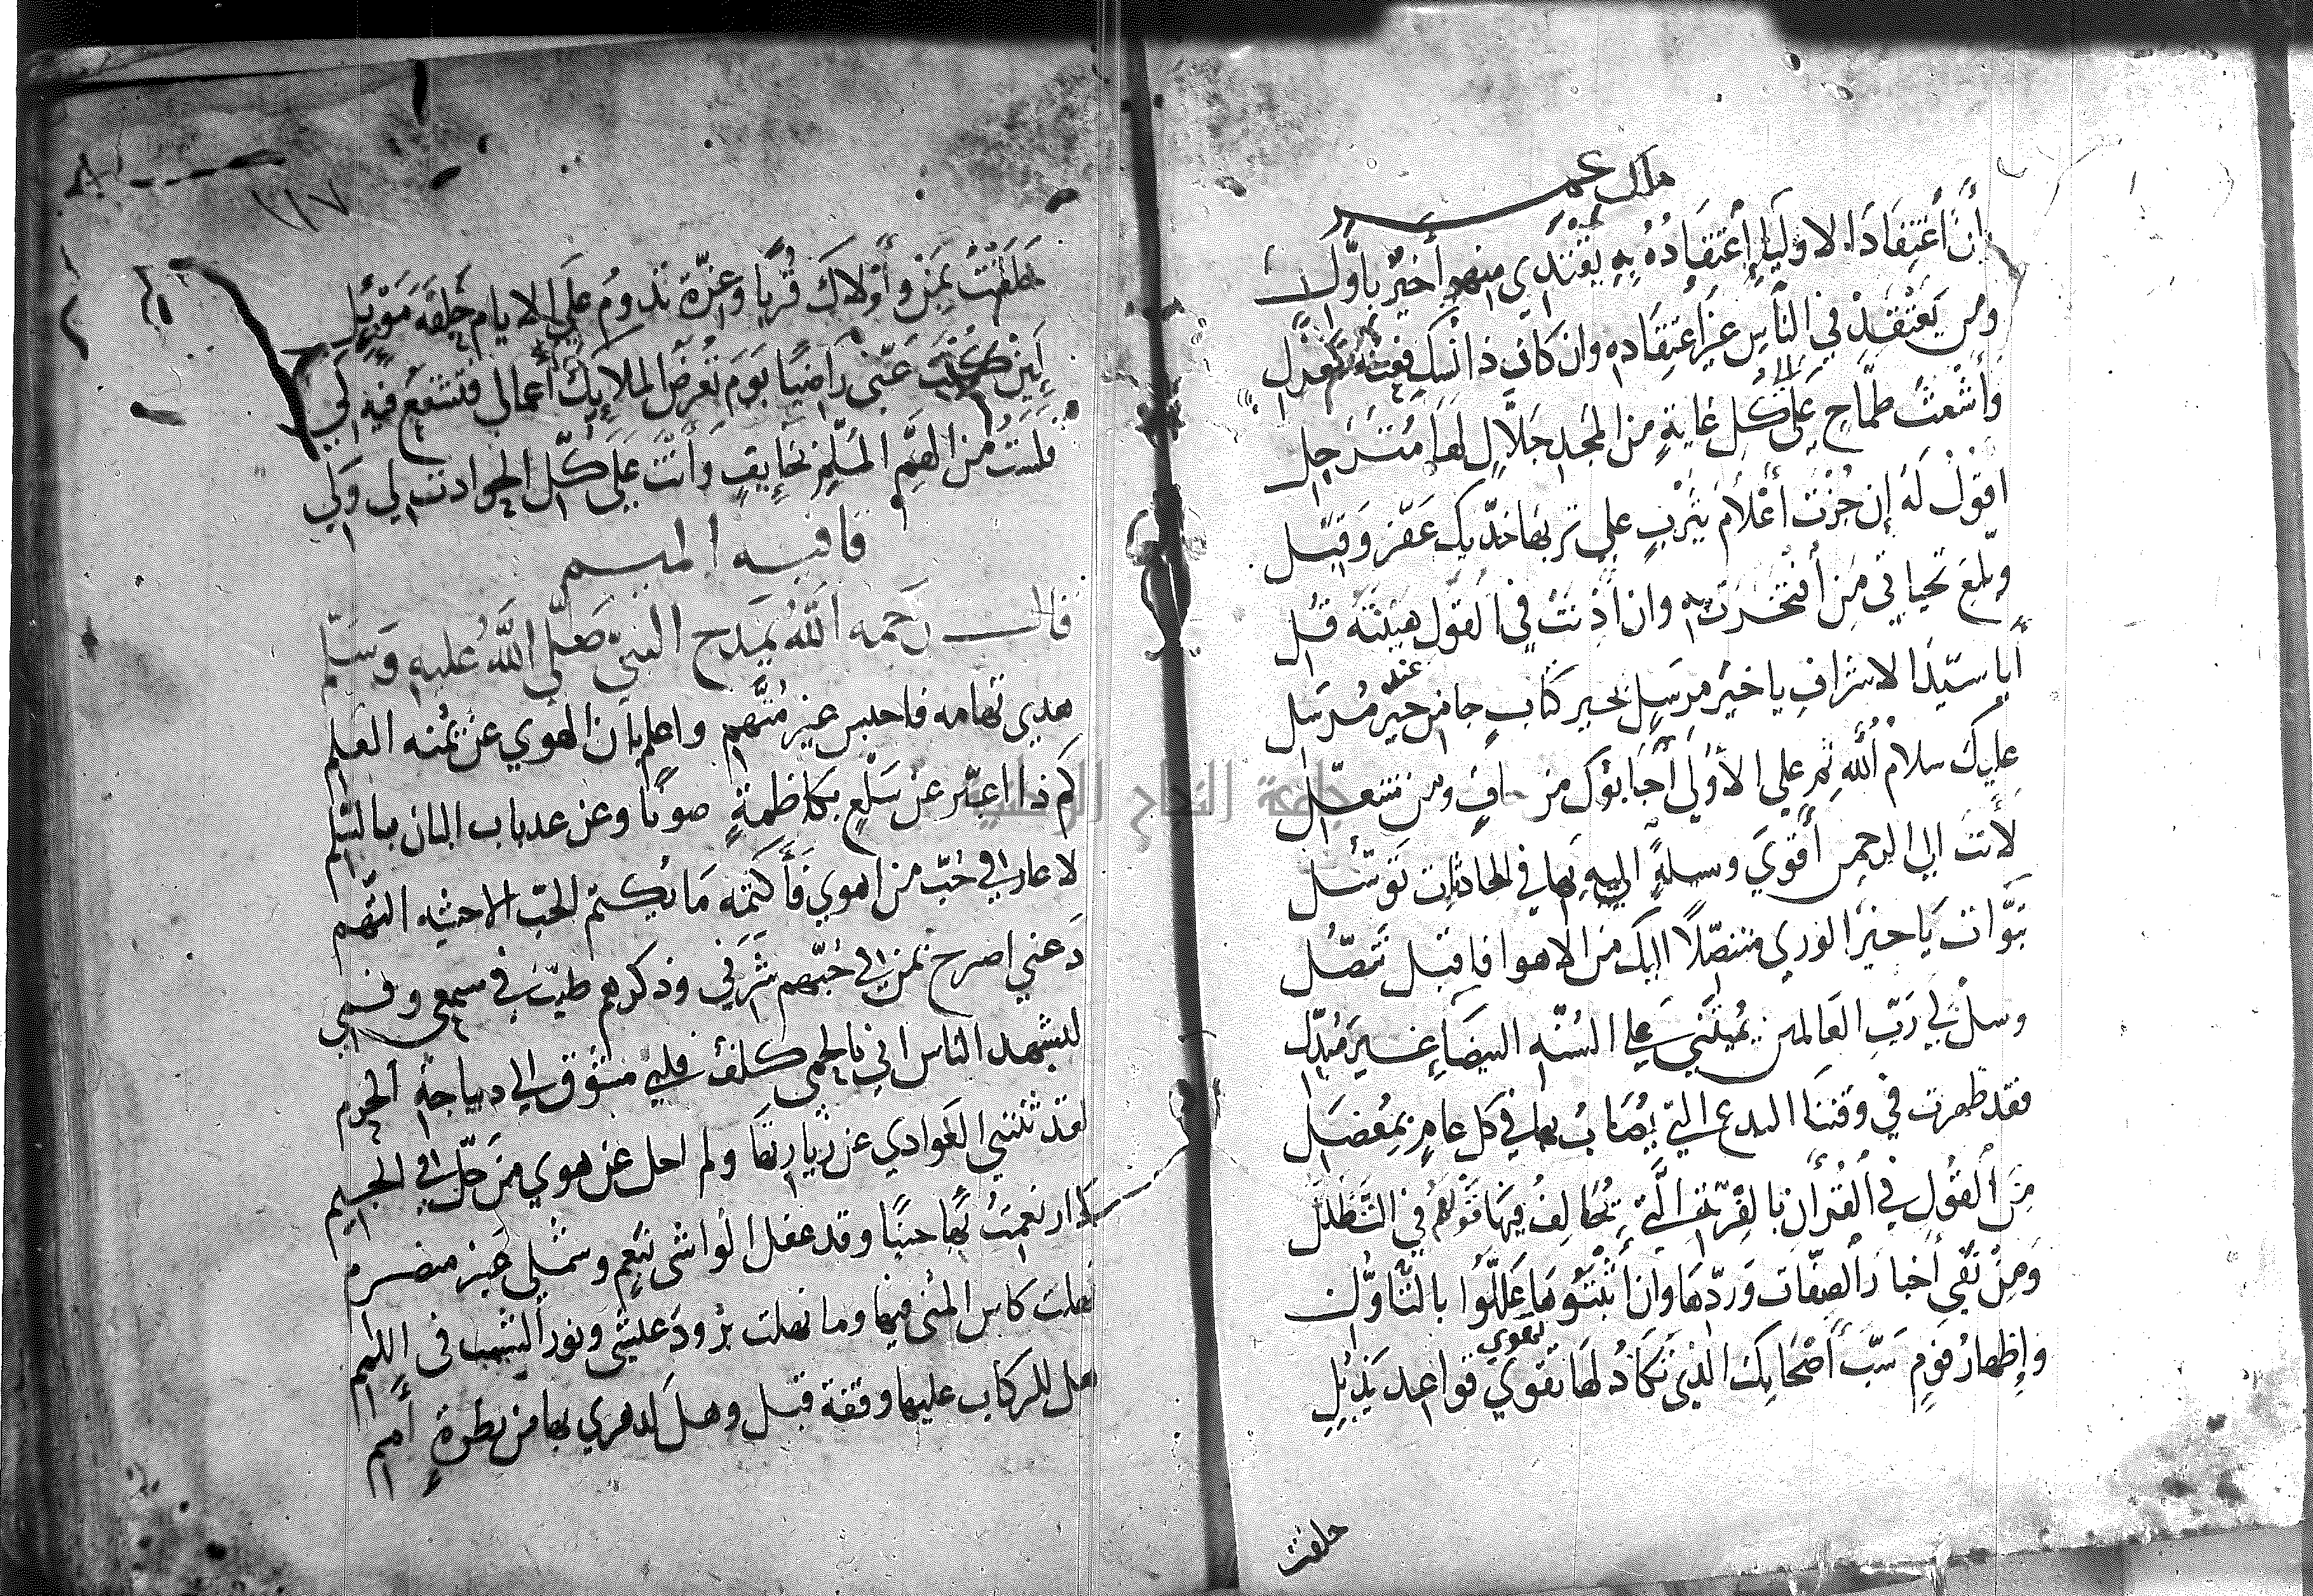 مالك عمر
أَن أَعْتِقَادَ الاوليا إِعْتِقَادُهُ بِهِ يَقْتَدِي منهم أَخيرٌ بأوّل
ومن يَعْتَقِدْ في النَّاسِ غيرَ اعتِقَاده وان كان ذا نسكٍ
وأشعثَ طمّاحٍ على كل غايةٍ من المجد حلّالٍ لها مترحل
اقولْ لَهُ إن جُزْتَ أَعْلَامَ يثربٍ علي تربها خدّيك عَفّر وَقبّل
وبلّغ تحياتي مَن أفتخرت به وان أَذِنَتْ في القول هَيْبته قُل
أَيا سيّدَ الاشرافِ يا خيرَ مرسَلٍ بخير كتابٍ جا من عند خير مُرسِل
عليك سلامُ اللهِ ثم علي الأولى أجابوك من حافٍ ومن متنعّل
لأَنتَ الي الرحمن أَقْوَى وسيلةٍ اليه بها في الحادثات توسّل
تبرّات يَا خيرَ الورى متنصّلاً اليك من الاهوا فاقبل تنصّل
وسلْ لي رَبّ العَالمين يُميتُني على السُنّه البيضاءِ غير مُبدّل
فقد ظهرت في وقتنا البدع التي يُصَابُ بها في كل عامٍ بمُعضَل
مِنَ القُولِ في القُرأن بالفِرْيَةِ الَّتي تُخَالِفُ فيها قولهم في التَنَزُّل
وَمِنْ نَفْيِ أَخبارِ الصِفات وَردِّهَا وَان أَثْبَتُوهَا عَلَّلُوا بالتأوُّل
وَإِظهارُ قومٍ سَبّ أَصْحَابِكَ الذي تَكَادُ لَهَا تَهْوِي قواعِد يَذْبُل
تهوي
حلفت
١١٧
حَلَفْتُ بِمَنْ أَوْلَاكَ قُربًا وعِزّة تدومُ على الايام حَلفَةَ مؤتلي
لَئِن كنتَ عَنّي راضيًا يومَ تُعرَضُ الملايِكُ أَعمالي فتشفع فيه لي
فلستُ من الهمّ المُلِمّ بخايِفٍ وأنتَ على كلّ الحوادث لي ولي
قافيه الميم
قال رحمه اللهُ يمدح النبيّ صلّى اللهُ عليه وسلّم
هذي تهامه فاحبس غير متّهم واعلم بان الهوي عن يمنه العلم
كم ذا اعبّر عن سَلْعٍ بكاظمةٍ صونًا وعن عذبات البان بالسّلم
لا عار في حُبّ من اهوي فأكتمه مَا يكتم الحبّ الا خشيه التهم
دَعني اصرح بمن في حُبّهم شرَفي وذكرهم طيبٌ في سمعي وفمي
ليشهد الناس اني بالحمى كلفٌ قلبي مشوق الي ديباجة الحرم
لقد ثنتني العوادي عن زيارتها ولم احل عن هوي من حلّ في الخيم
دار نعمتُ بها حينًا وقد غفل الواشي نَعِم وشملي غير منصرم
نهلت كاس المنى فيها وما نهلت برود عيشي ونور الشيب في اللمم
هل للركاب عليها وقفة قبل وهل لدهري بها من نظرةٍ أمم